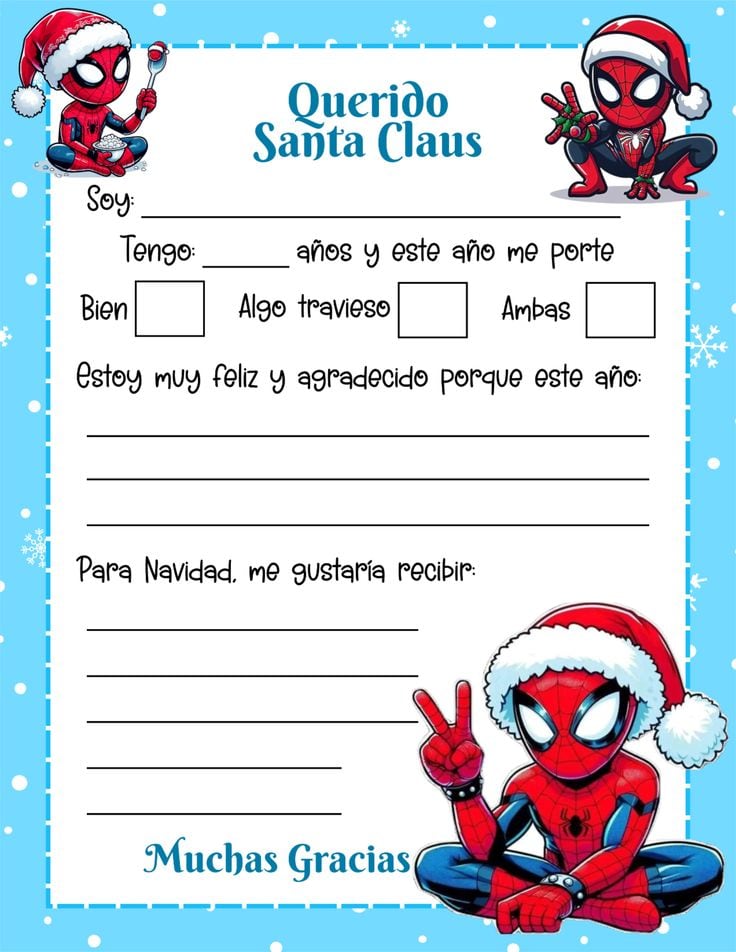 Querido
Santa Claus
Soy:
Tengo: años y este año me porte
Bien Algo travieso Ambas
Estoy muy feliz y agradecido porque este año:
Para Navidad, me gustaría recibir:
Muchas Gracias